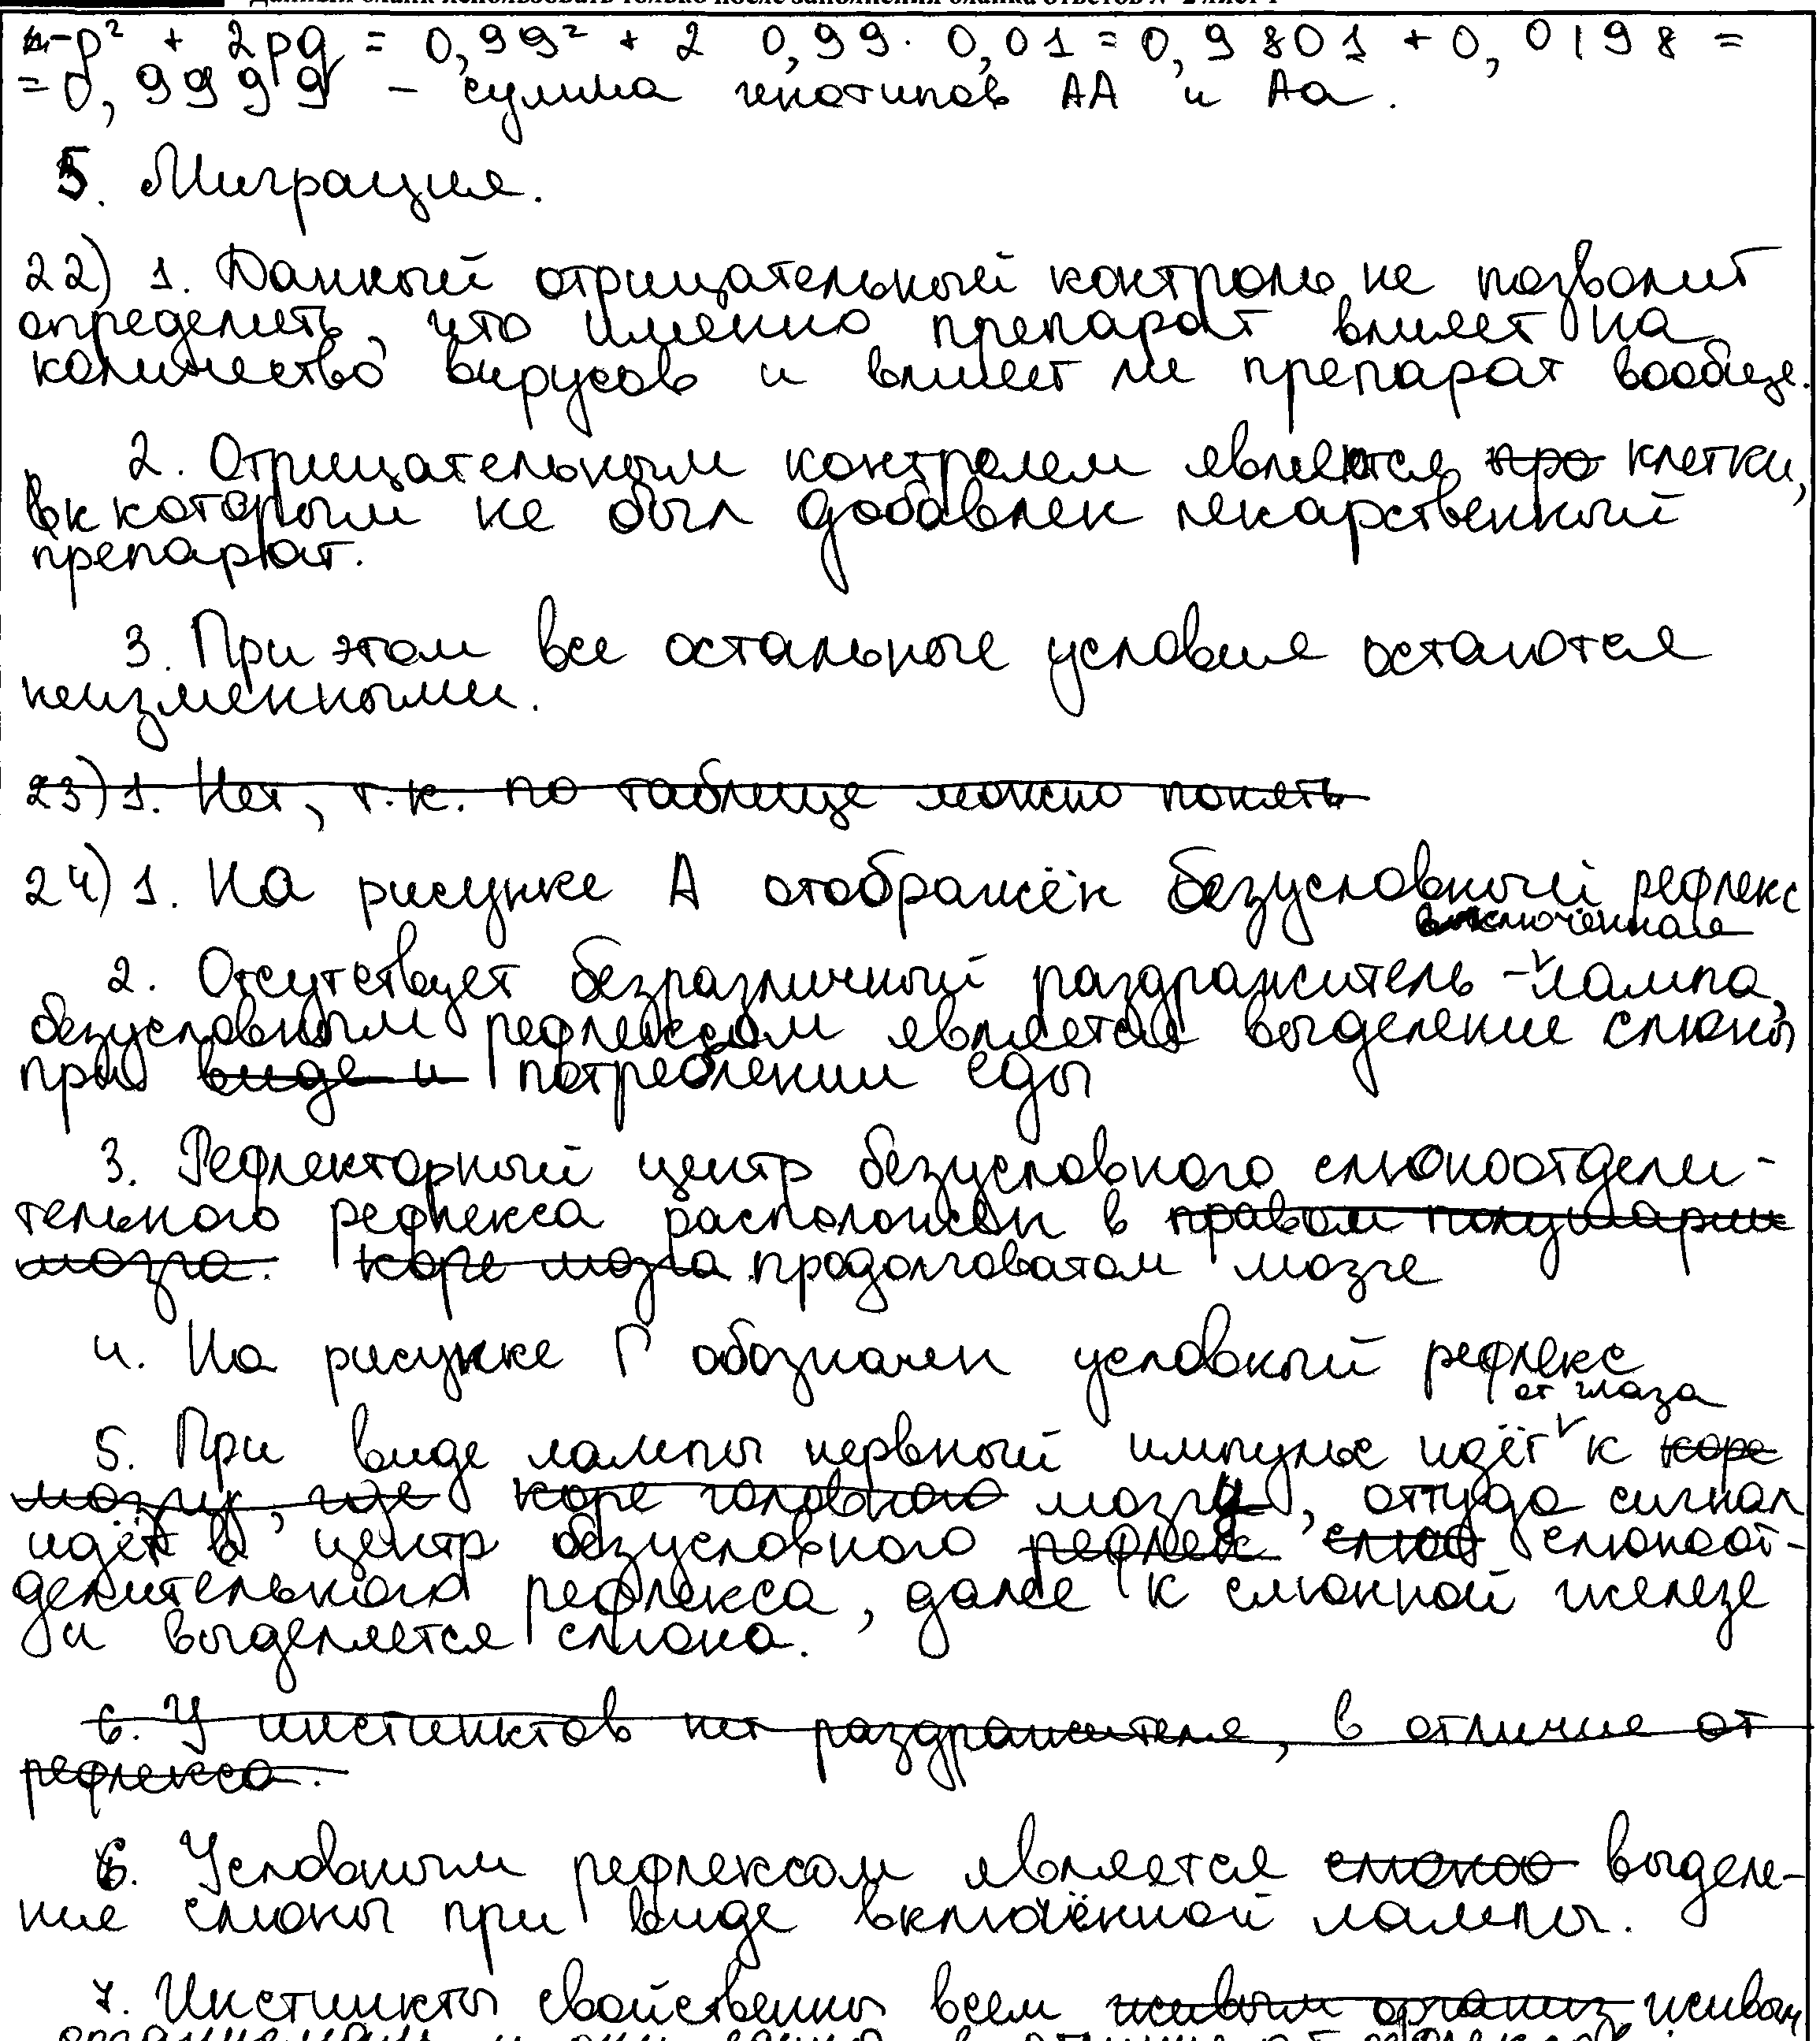 Данный бланк использовать только после заполнения бланка ответов № 2 лист 1
p² + 2pq = 0,99² + 2 0,99 · 0,01 = 0,9801 + 0,0198 =
= 0,9999 – сумма генотипов АА и Аа.
5. Миграция.
22) 1. Данный отрицательный контроль не позволит
определить, что именно препарат влияет на
количество вирусов и влияет ли препарат вообще.
2. Отрицательным контролем являются про клетки,
к которым не был добавлен лекарственный
препарат.
3. При этом все остальные условия остаются
неизменными.
23) 1. Нет, т.к. по таблице можно понять
24) 1. На рисунке А отображён безусловный рефлекс
включённая
2. Отсутствует безразличный раздражитель – лампа,
безусловным рефлексом является выделение слюны
при виде и потреблении еды
3. Рефлекторный центр безусловного слюноотдели-
тельного рефлекса расположен в правом полушарии
мозга. коре мозга продолговатом мозге
4. На рисунке Г обозначен условный рефлекс
от глаза
5. При виде лампы нервный импульс идёт к коре
мозгу, где коре головного мозга, оттуда сигнал
идёт в центр безусловного рефлек слюо слюноот-
делительного рефлекса, далее к слюнной железе
и выделяется слюна.
6. У инстинктов нет раздражителя, в отличие от
рефлекса.
6. Условным рефлексом является слюноо выделе-
ние слюны при виде включённой лампы.
7. Инстинкты свойственны всем живым организ живым